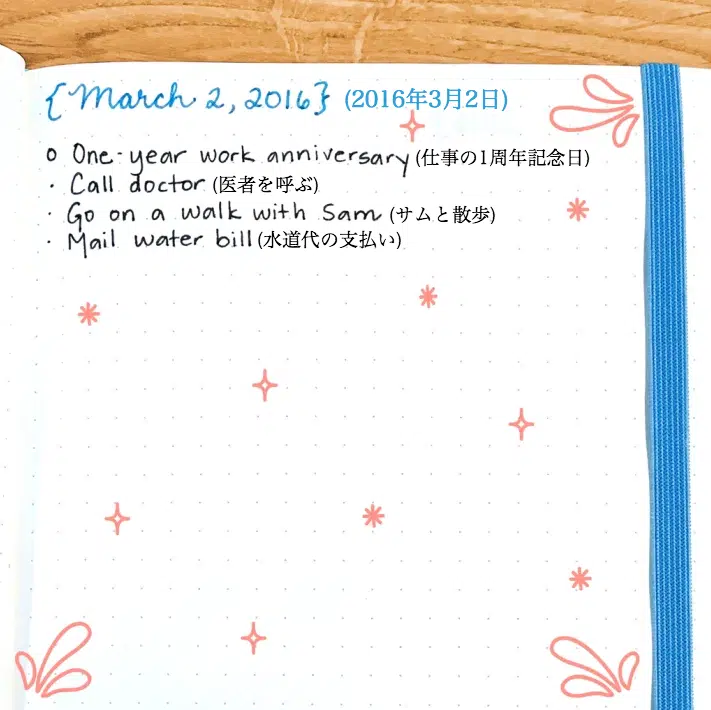 {March 2, 2016} (2016年3月2日)
o One-year work anniversary (仕事の1周年記念日)
· Call doctor (医者を呼ぶ)
· Go on a walk with Sam (サムと散歩)
· Mail water bill (水道代の支払い)